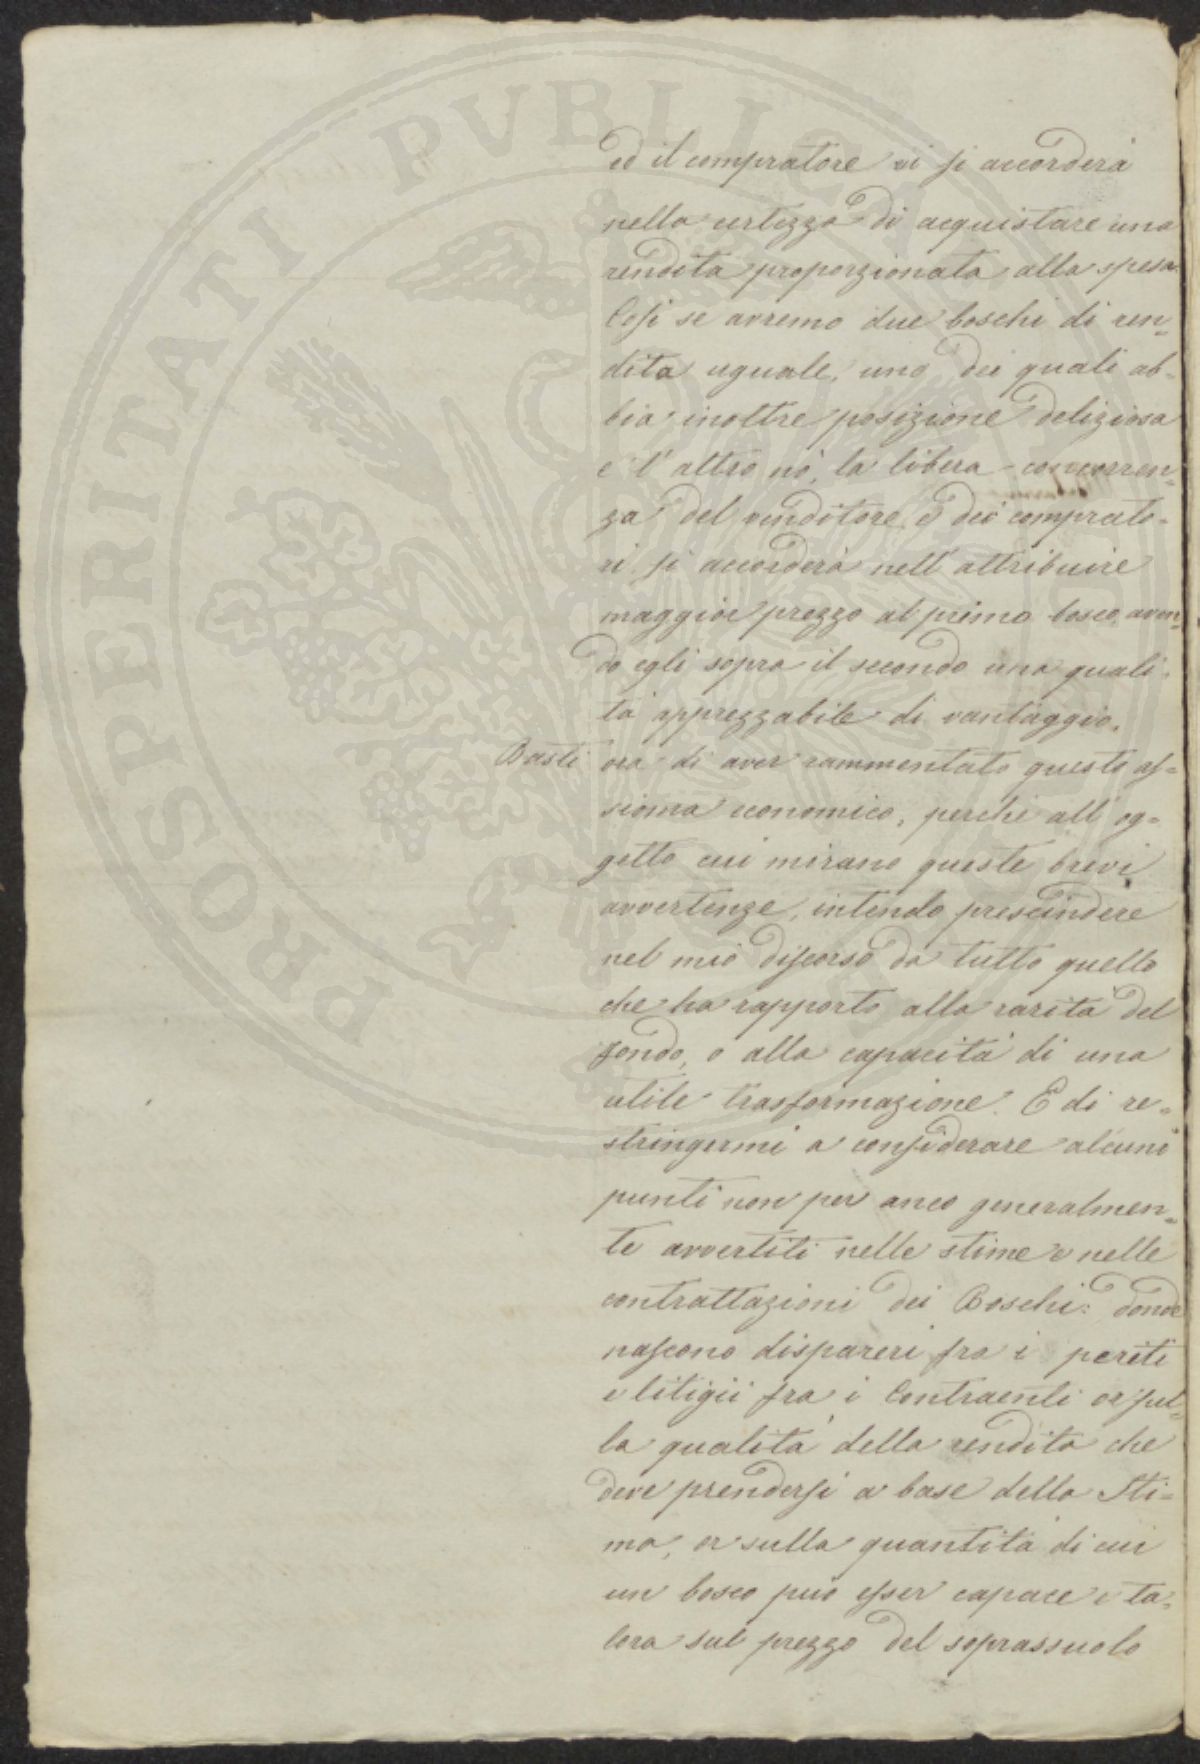 ed il compratore vi si accorderà
nella certezza di acquistare una
rendita proporzionata alla spesa.
Così se avremo due boschi di ren=
dita uguale, uno dei quali ab=
bia inoltre posizione deliziosa
e l'altro nò, la libera concorren=
za del venditore e dei comprato=
ri si accorderà nell'attribuire
maggior prezzo al primo bosco aven=
do egli sopra il secondo una quali=
tà apprezzabile di vantaggio.
Basti ora di aver rammentato questo as=
sioma economico, perchè all'og=
getto cui mirano queste brevi
avvertenze, intendo prescindere
nel mio discorso da tutto quello
che ha rapporto alla rarità del
fondo, o alla capacità di una
utile trasformazione. E di re=
stringermi a considerare alcuni
punti non per anco generalmen=
te avvertiti nelle stime e nelle
contrattazioni dei Boschi: donde
nascono dispareri fra i periti
e litigii fra i Contraenti or sul=
la qualità della rendita che
deve prendersi a base della Sti=
ma, or sulla quantità di cui
un bosco può esser capace e ta=
lora sul prezzo del soprassuolo
PROSPERITATI PVBLICAE